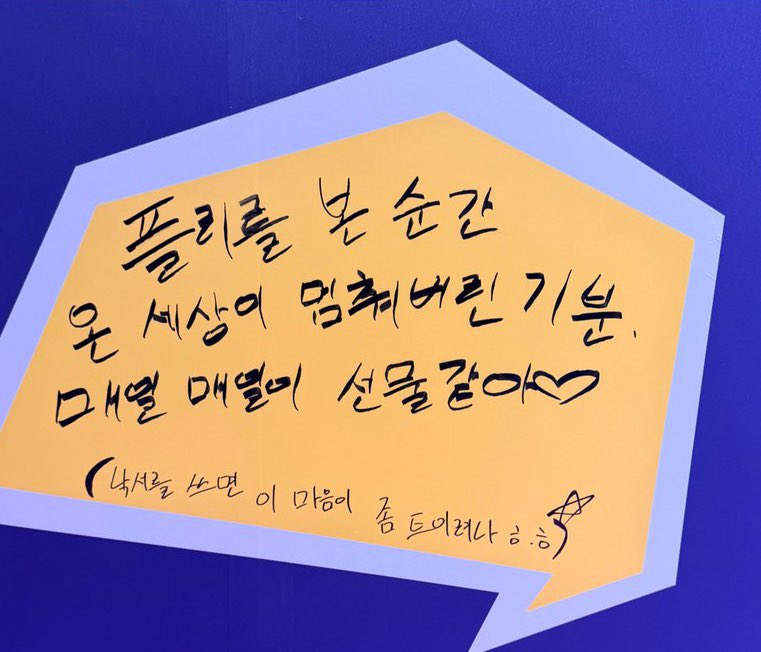 플리를 본 순간
온 세상이 멈춰버린 기분.
매일 매일이 선물같아♡
(낙서를 쓰면 이 마음이 좀 트이려나 ㅎ.ㅎ)